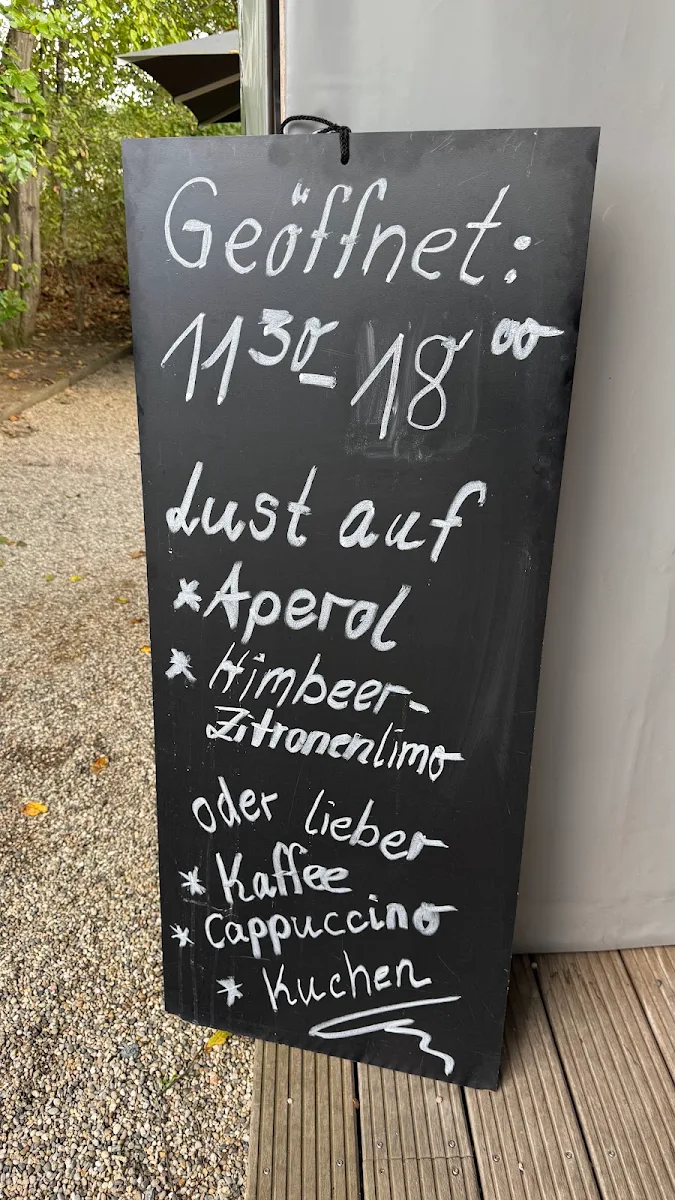 Geöffnet:
11³⁰-18⁰⁰
Lust auf
*Aperol
*Himbeer-
Zitronenlimo
oder lieber
*Kaffee
*Cappuccino
*Kuchen